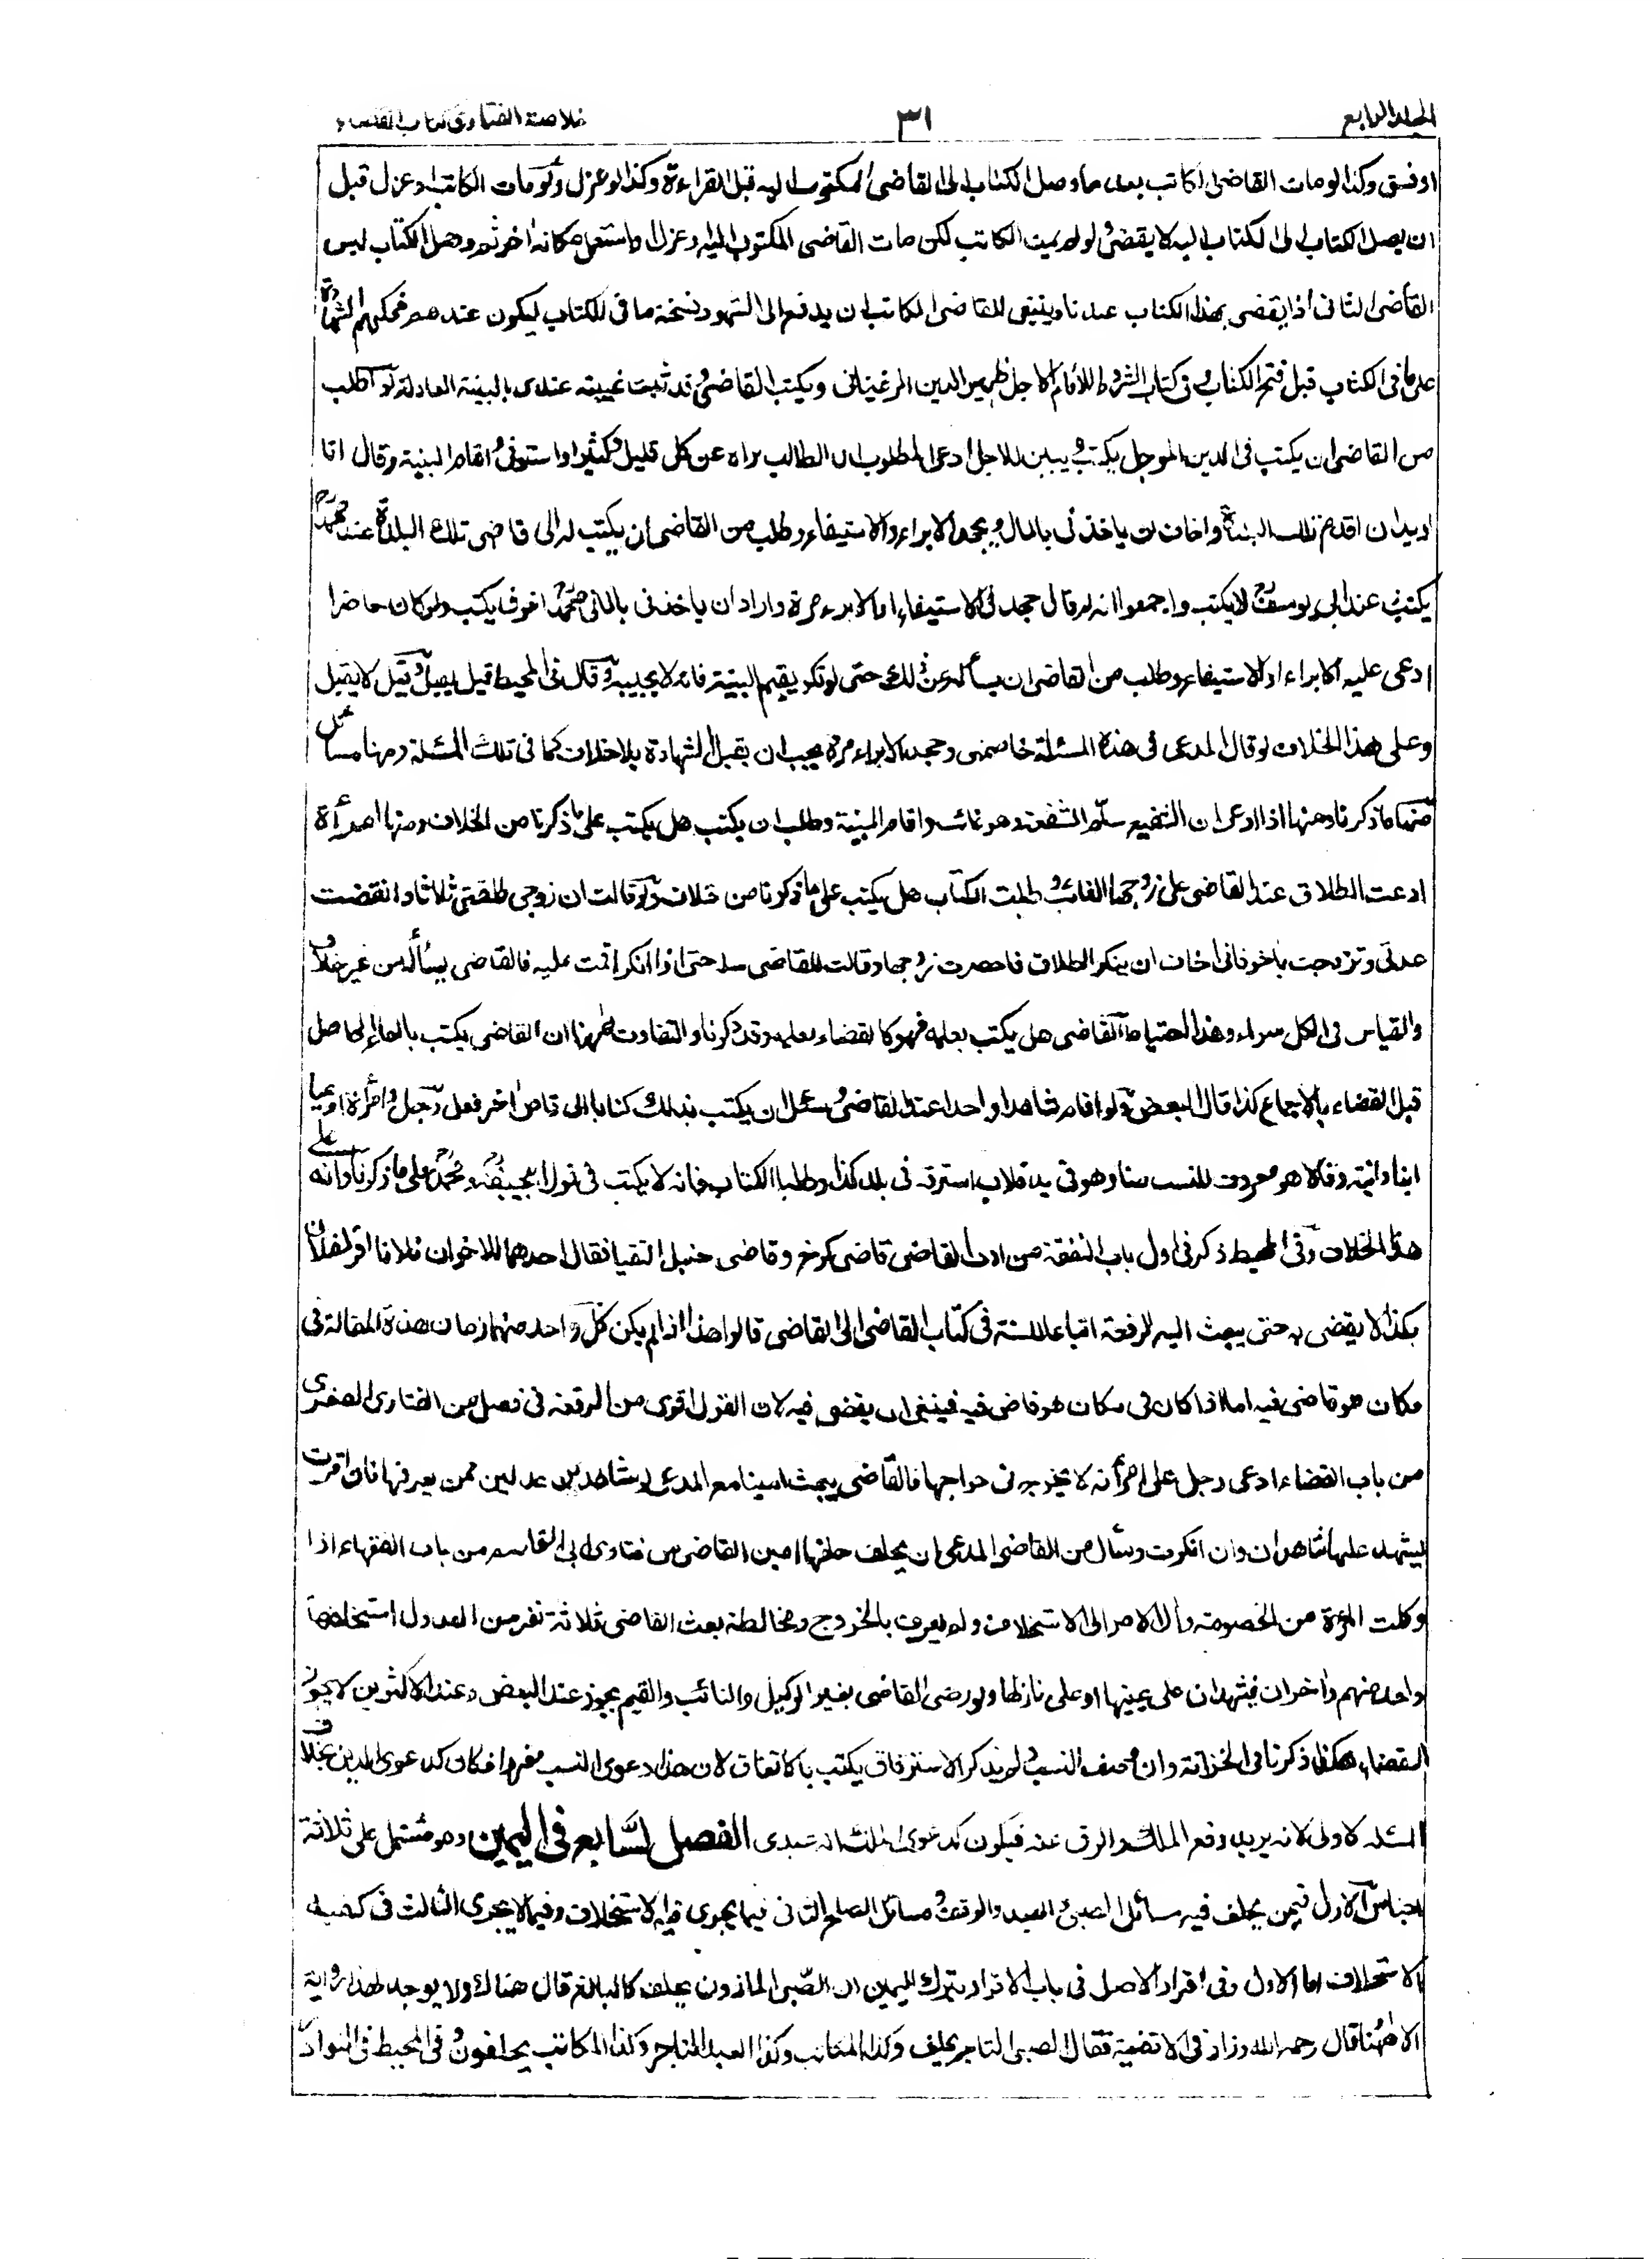 المجلد الرابع
٣١
خلاصة الفتاوى كتاب القضاء
او فسق وكذا لو مات القاضى الكاتب بعد ما وصل الكتاب الى القاضى المكتوب اليه قبل القراءة وكذا لو عزل ولو مات الكاتب او عزل قبل
ان يصل الكتاب الى المكتاب اليه لا يقضى ولو لم يمت الكاتب لكن مات القاضى المكتوب اليه او عزل واستعمل مكانه اخر ثم وصل الكتاب ليس
القاضى الثانى اذا يقضى بهذا الكتاب عندنا وينبغى للقاضى الكاتب ان يدفع الى الشهود نسخة ما فى الكتاب ليكون عندهم فيمكنهم الشهادة
على ما فى الكتاب قبل فتح الكتاب وفى كتاب الشروط للأمام الاجل ظهير الدين المرغينانى ويكتب القاضى وقد ثبت غيبته عندى بالبينة العادلة ولو طلب
من القاضى ان يكتب فى الدين الموجل يكتب ويبين الاجل ادعى المطلوب ان الطالب براه عن كل قليل وكثير او استوفى واقام البينة وقال انا
اريد ان اقدم تلك البلدة واخاف ان ياخذنى بالمال ويجحد الابراء والاستيفاء وطلب من القاضى ان يكتب له الى قاضى تلك البلدة عند محمد
يكتب عند ابى يوسف لا يكتب واجمعوا انه لو قال جحد لى الاستيفاء او الابراء مرة واراد ان ياخذنى بالمال يكتب ولو كان حاضرا
ادعى عليه الابراء او الاستيفاء وطلب من القاضى ان يسأله عن ذلك حتى لو انكر يقيم البينة فانه لا يجيبه وقال فى المحيط قيل يقبل وقيل لا يقبل
وعلى هذا الخلاف لو قال المدعى فى هذه المسئلة خاصمنى وجحد الابراء مرة يجب ان يقبل الشهادة بلا خلاف كما فى تلك المسئلة وههنا مسائل
منها ما ذكرنا ومنها اذا ادعى ان الشفيع سلم الشفعة وهو غائب واقام البينة وطلب ان يكتب هل يكتب على ما ذكرنا من الخلاف ومنها امرأة
ادعت الطلاق عند القاضى على زوجها الغائب وطلبت الكتاب هل يكتب على ما ذكرنا من خلاف ولو قالت ان زوجى طلقنى ثلاثا وانقضت
عدتى وتزوجت باخر فانى اخاف ان ينكر الطلاق فاحضرت زوجها وقالت للقاضى سله حتى اذا انكر اقمت عليه فالقاضى يسأله من غير خلاف
والقياس فى الكل سواء وهذا احتياط القاضى هل يكتب بعلمه فهو كالقضاء بعلمه وقد ذكرنا والتفاوت ههنا ان القاضى يكتب بالعلم الحاصل
قبل القضاء بالاجماع كذا قال البعض ولو اقام شاهدا واحدا عند القاضى وسئل ان يكتب بذلك كتابا الى قاض اخر فعل رجل وامرأة ادعيا
ابنا وابنة وقالا هو معروف النسب منا وهو فى يد فلان استرقه فى بلد كذا وطلبا الكتاب فانه لا يكتب فى قول ابى حنيفة ومحمد على ما ذكرنا وانه على
هذا الخلاف وفى المحيط ذكر فى اول باب النفقة من ادب القاضى قاضى كرخ وقاضى خنبل التقيا فقال احدهما للاخر ان فلانا اقر لفلان
بكذا لا يقضى به حتى يبعث اليه الرقعة اتباعا للسنة فى كتاب القاضى الى القاضى قالوا هذا اذا لم يكن كل واحد منهما زمان هذه المقالة فى
مكان هو قاضى فيه اما اذا كان فى مكان هو قاض فيه فينبغى ان يقضى فيه لان القول اقوى من الرقعة فى فصل من الفتاوى الصغرى
من باب القضاء ادعى رجل على امرأته لا تخرج فى حواجها فالقاضى يبعث امينا مع المدعى وشاهدين عدلين ممن يعرفها فان اقرت
يشهد عليها شاهدان وان انكرت وسأل من القاضى المدعى ان يحلف حلفها امين القاضى من فتاوى ابى القاسم من باب الفقهاء اذا
وكلت المرأة من الخصومة وأل الامر الى الاستحلاف ولم يعرف بالخروج ومخالطة بعث القاضى ثلاثة نفر من العدول استحلفها
واحد منهم واخران فيشهدان على يمينها او على نازلها ولو رضى القاضى بغير الوكيل والنائب والقيم يجوز عند البعض وعند الاكثرين لا يجوز
القضاء هكذا ذكرنا فى الخزانة وان وصف النسب ولم يذكر الاسترقاق يكتب بالاتفاق لان هذا دعوى النسب مفردا فكان كدعوى الدين بخلاف
المسئلة الاولى لانه يريد رفع الملك والرق عنه فيكون كدعوى الملك انه عبدى الفصل السابع فى اليمين وهو مشتمل على ثلاثة
اجناس الاول فيمن يحلف فيه مسائل الصبى والعبد والوقف ومسائل الصلح الثانى فيما يجرى فيه الاستحلاف وفيما لا يجرى الثالث فى كيفية
الاستحلاف اما الاول وفى اقرار الاصل فى باب الاقرار بترك اليمين ان الصبى الماذون يحلف كالبالغ قال هناك ولا يوجد لهذا رواية
الا ههنا قال رحمه الله وزاد فى الاقضية فقال الصبى التاجر يحلف وكذا العبد التاجر وكذا المكاتب يحلفون وفى المحيط فى النوادر